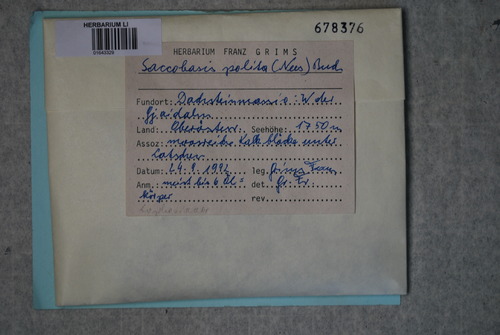 HERBARIUM LI
01643329
678376
HERBARIUM FRANZ GRIMS
Saccobasis polita (Nees) Buch
Fundort: Dachsteinmassiv: W der
Gjaidalm
Land: Oberösterr. Seehöhe: 1750 m
Assoz: moosreiche Kalkblöcke unter
Latschen
Datum: 24.9.1992 leg. Grims Franz
Anm.: meist bis 6 Öl=
körper
det. Gr. Fr.
rev.